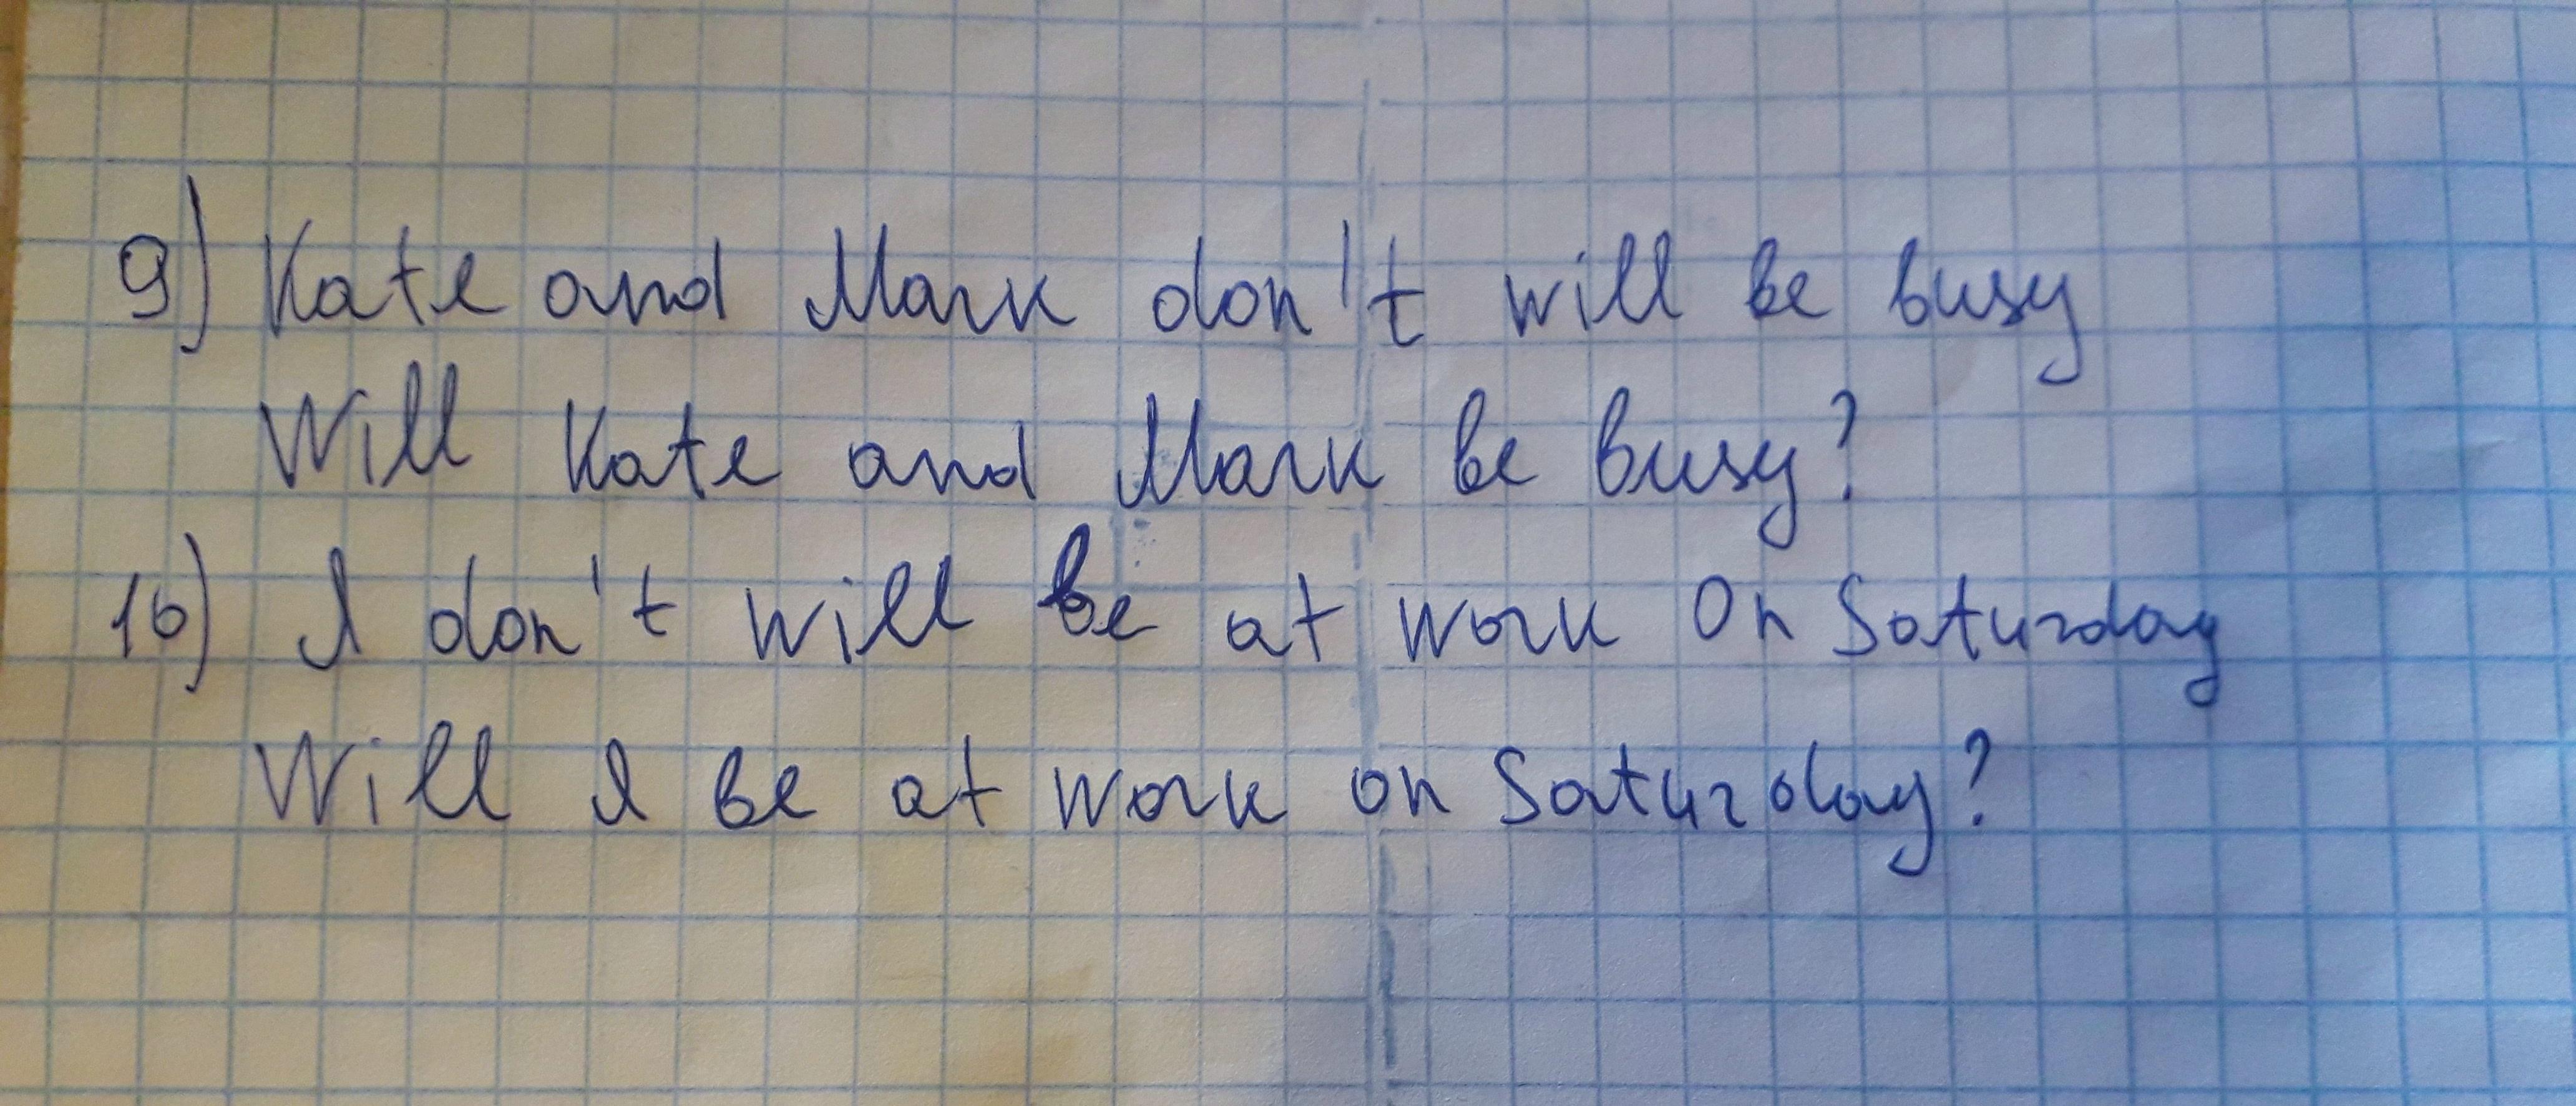 9) Kate and Mark don't will be busy
Will Kate and Mark be busy?
10) I don't will be at work On Saturday
Will I be at work on Saturday?